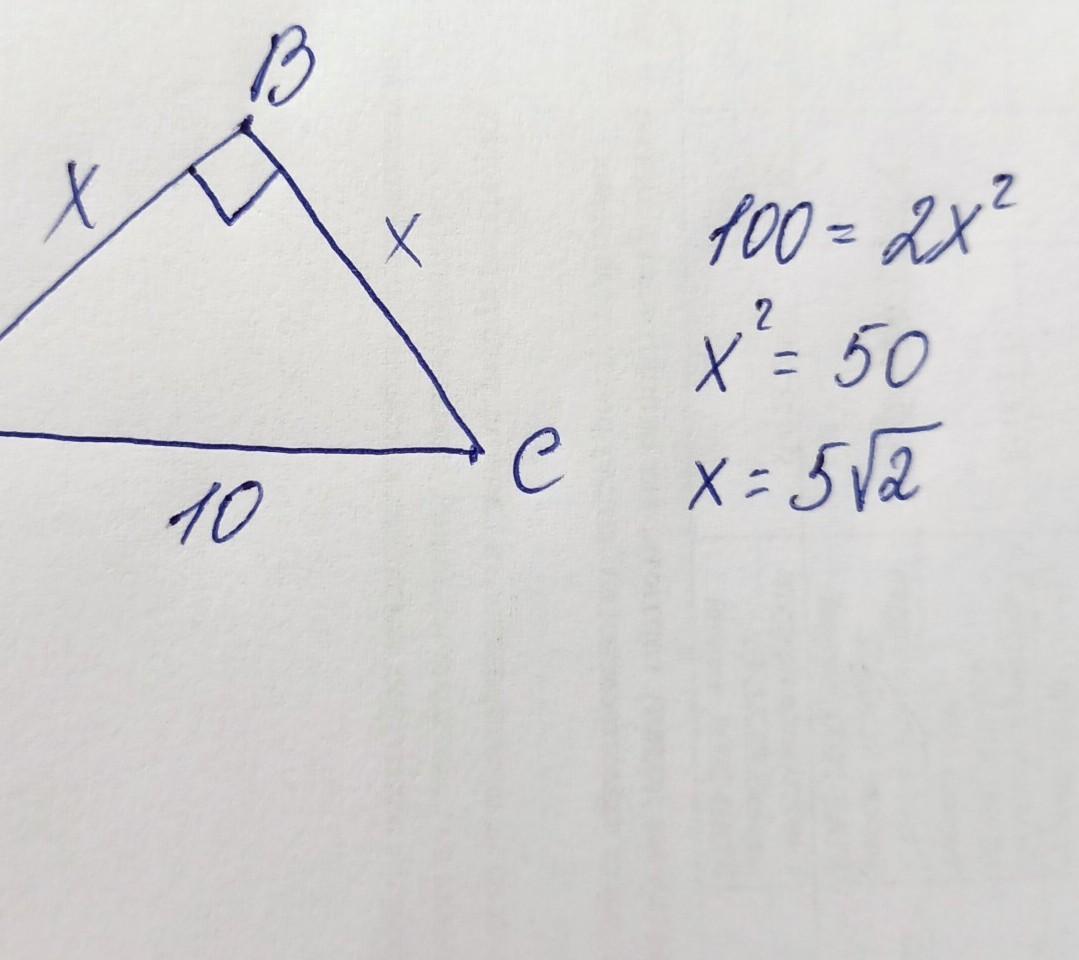 B
X
X
10
C
100 = 2x²
x² = 50
x = 5√2